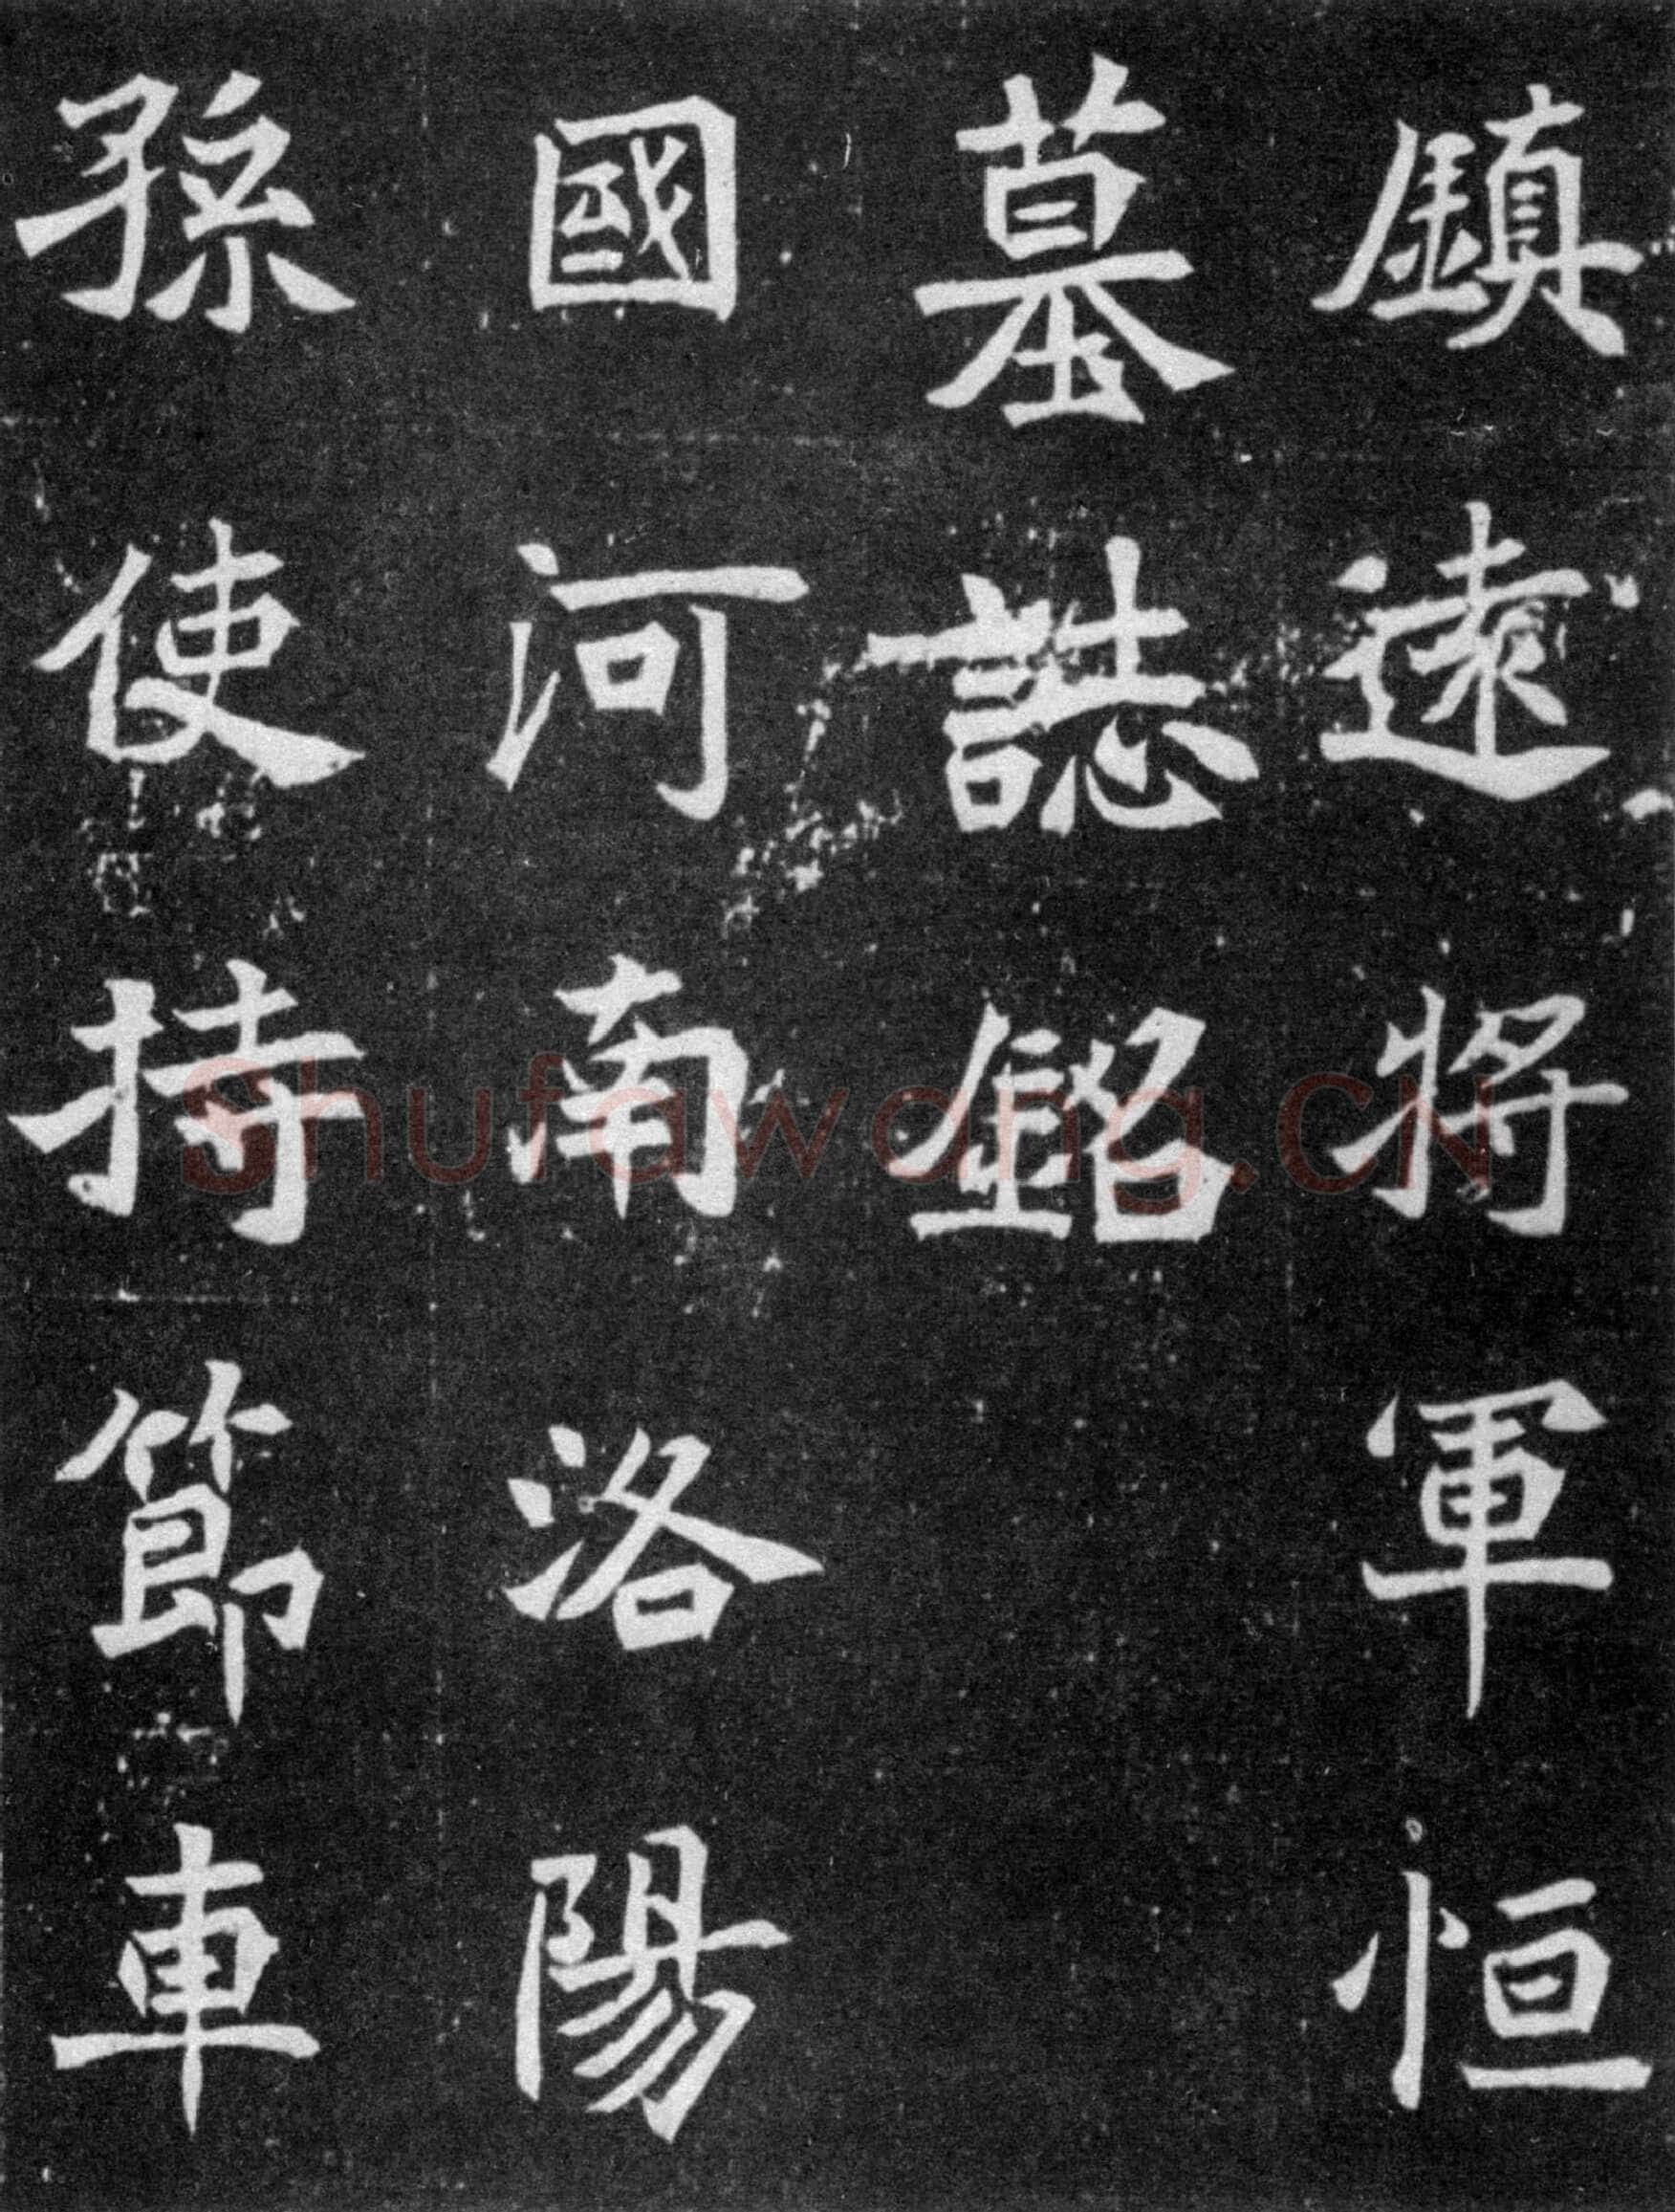 鎮遠將軍恒
墓誌銘
國河南洛陽
孫使持節車
Shufawang.CN